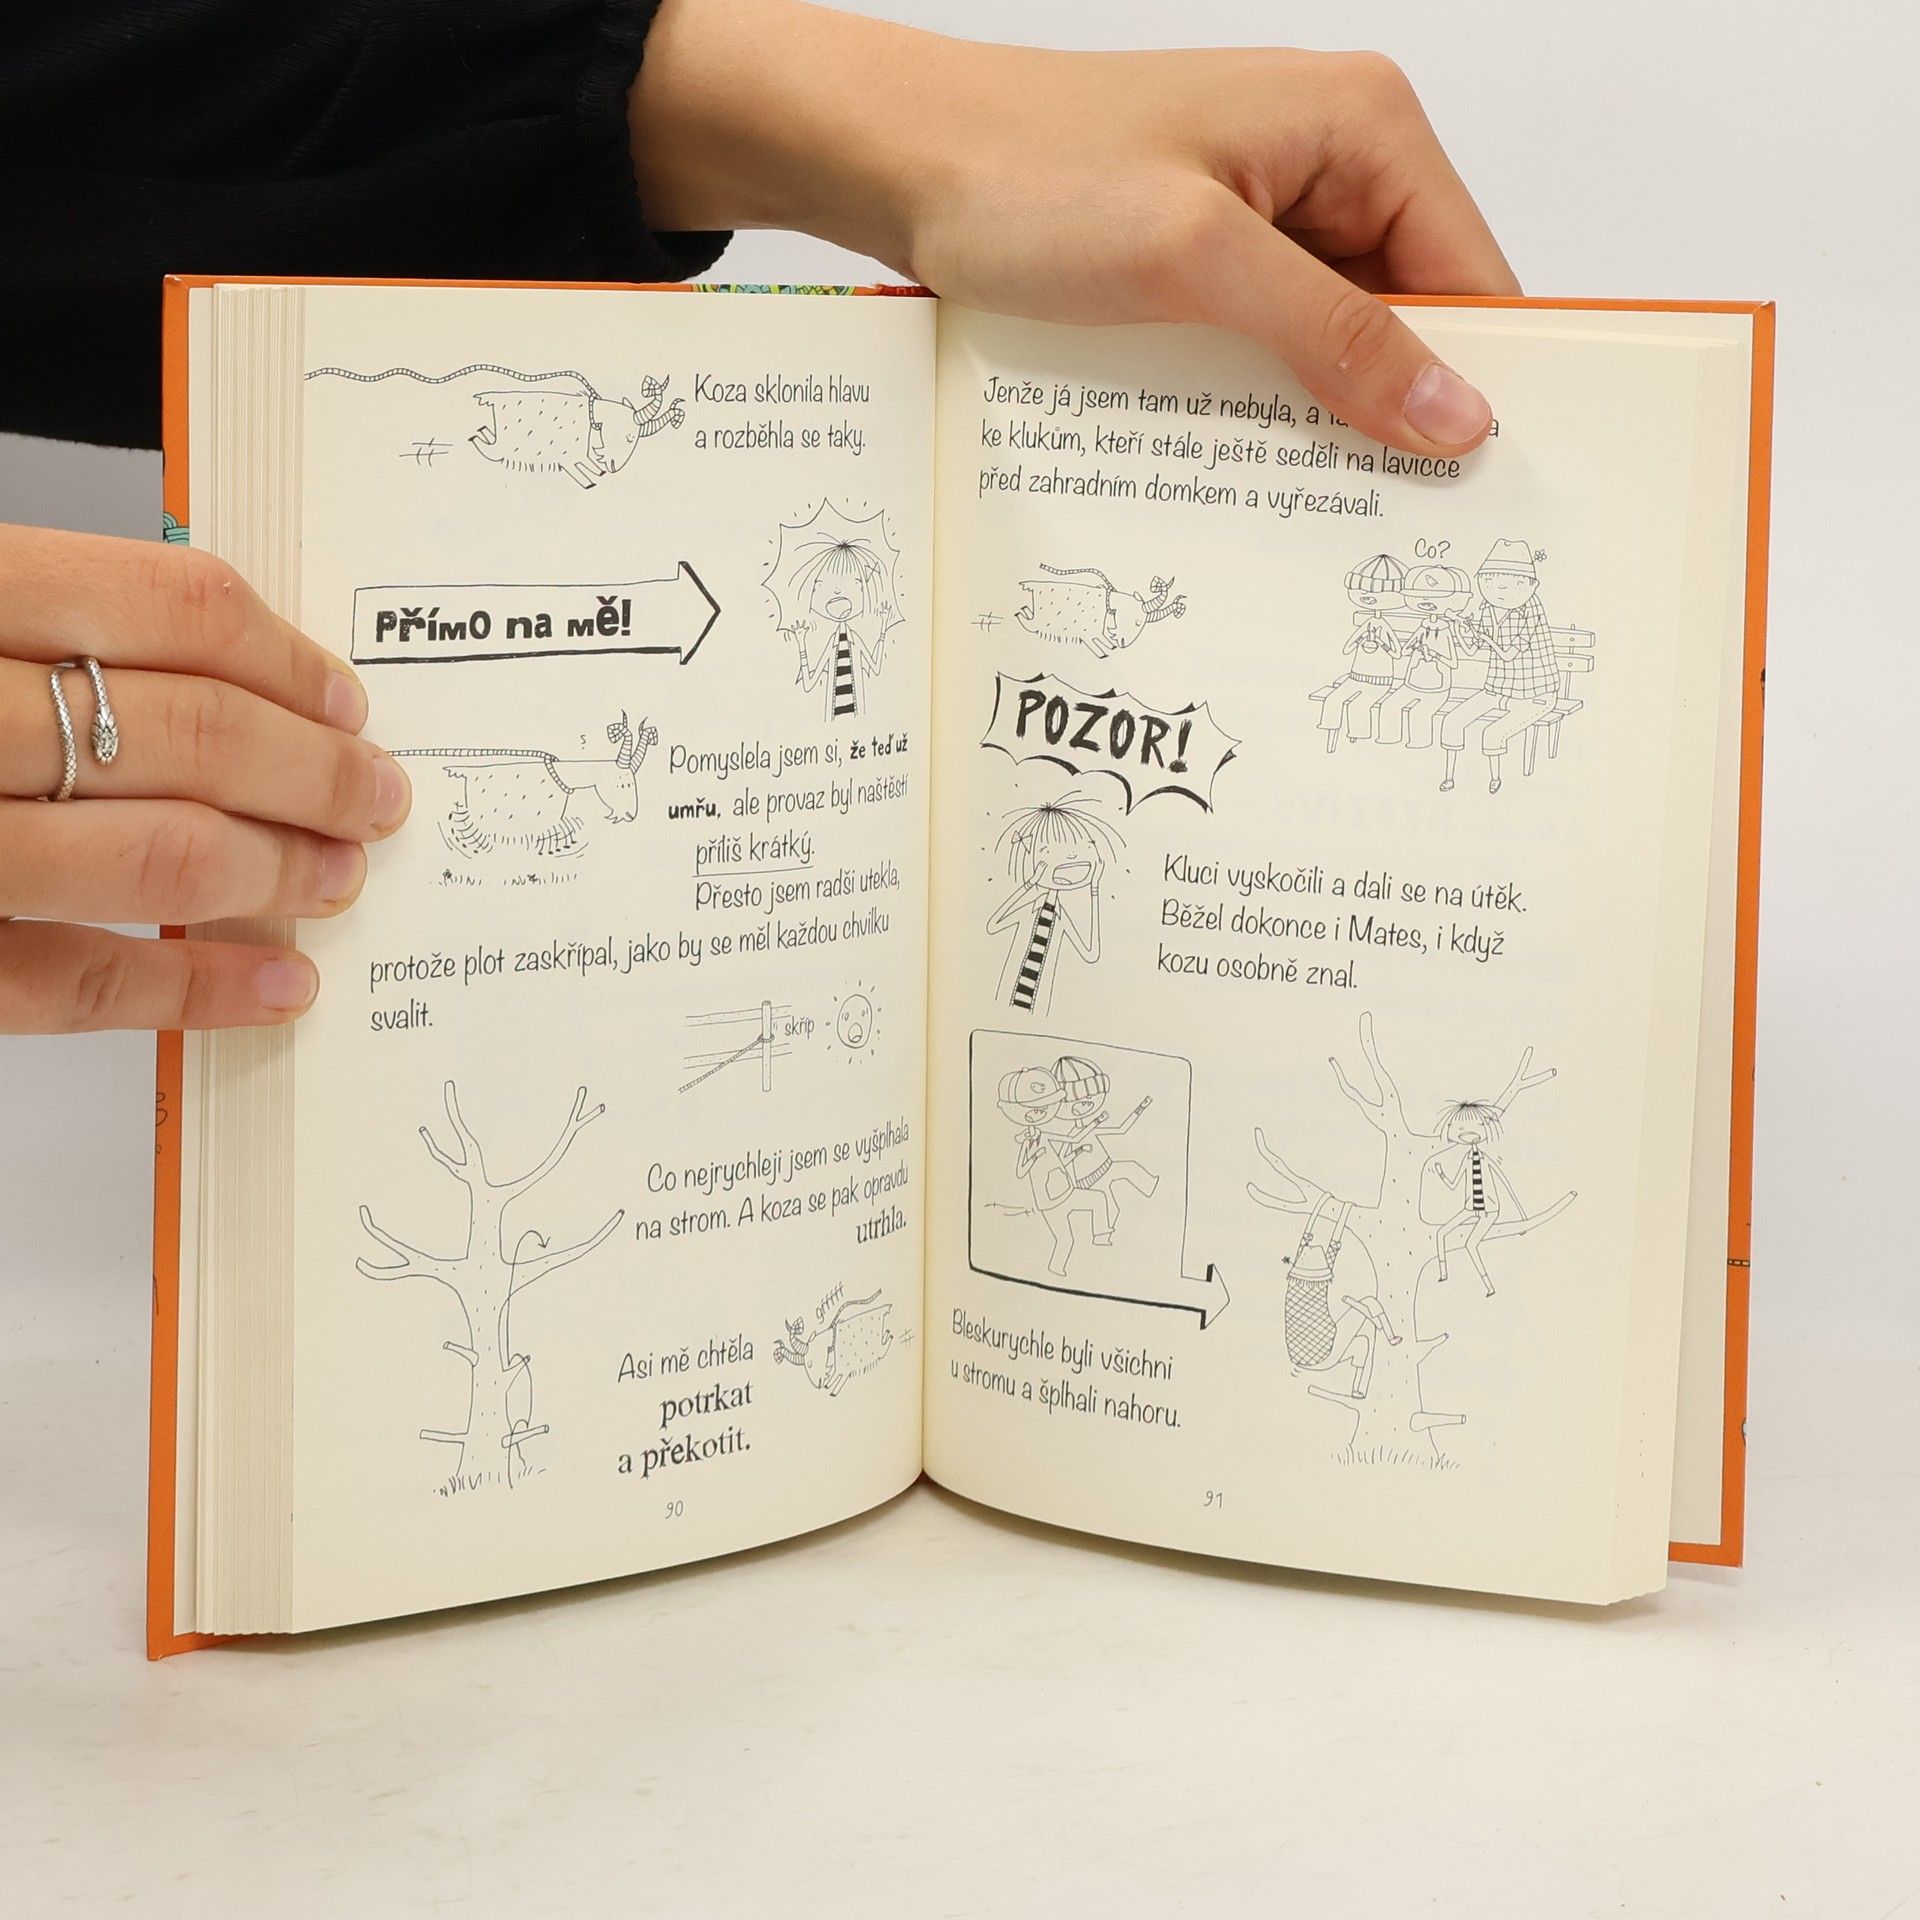 Koza sklonila hlavu
a rozběhla se taky.
PŘÍMO na MĚ!
Pomyslela jsem si, že teď už
umřu, ale provaz byl naštěstí
příliš krátký.
Přesto jsem radši utekla,
protože plot zaskřípal, jako by se měl každou chvilku
svalit.
skříp
Co nejrychleji jsem se vyšplhala
na strom. A koza se pak opravdu
utrhla.
grrrrr
Asi mě chtěla
potrkat
a překotit.
90
Jenže já jsem tam už nebyla, a
ke klukům, kteří stále ještě seděli na lavičce
před zahradním domkem a vyřezávali.
Co?
POZOR!
Kluci vyskočili a dali se na útěk.
Běžel dokonce i Mates, i když
kozu osobně znal.
Bleskurychle byli všichni
u stromu a šplhali nahoru.
91